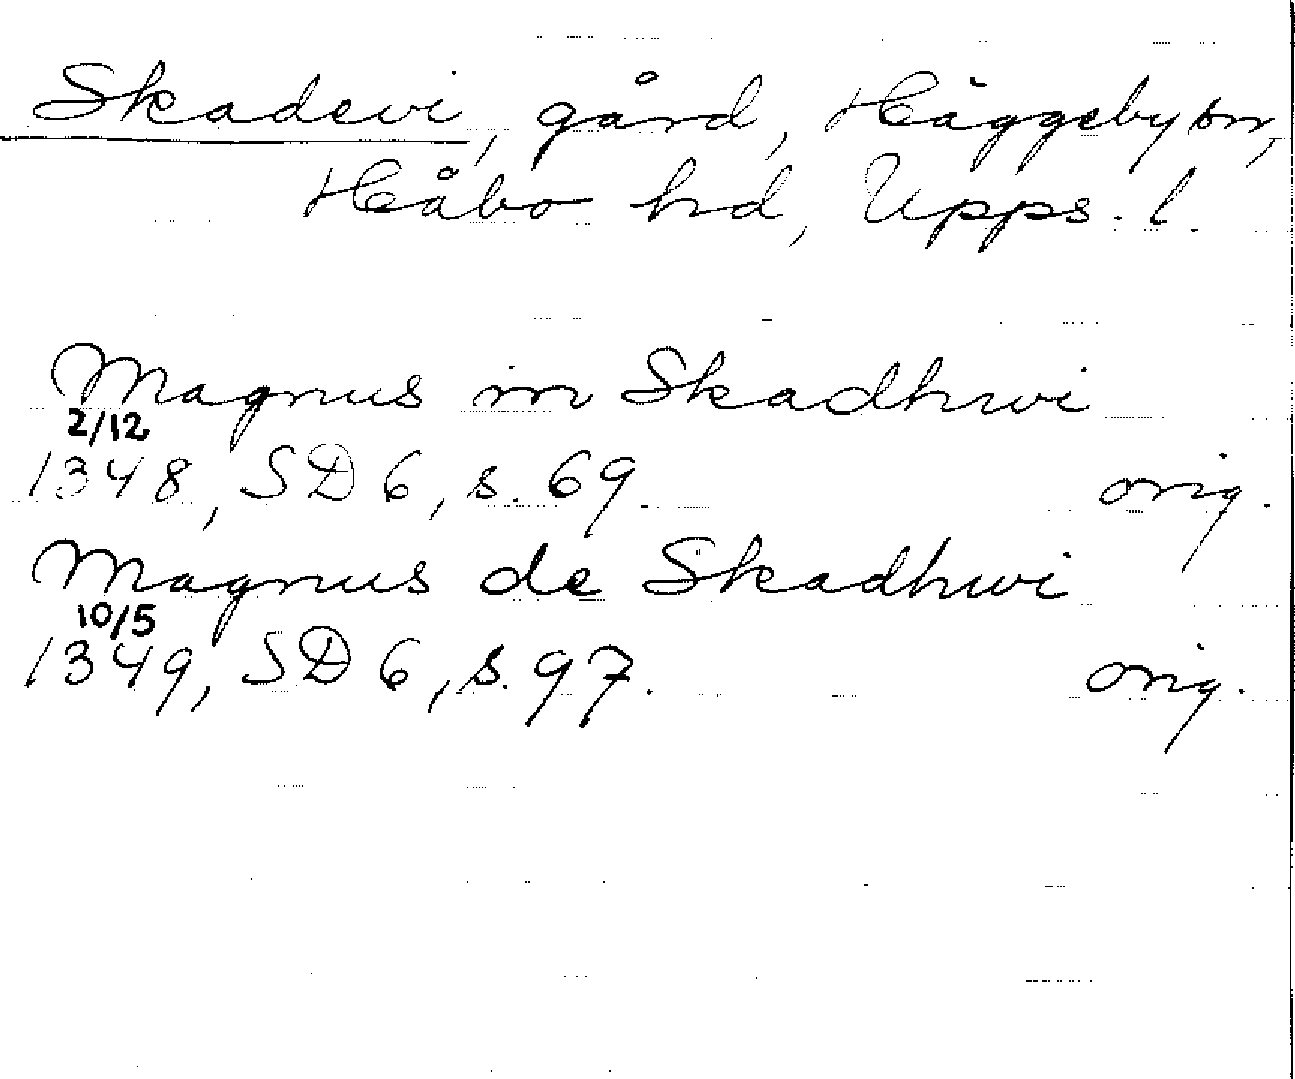 Skadevi, gård, Häggeby sn,
Håbo hd, Upps. l.
Magnus in Skadhwi
2/12
1348, SD 6, s. 69. orig.
Magnus de Skadhwi
10/5
1349, SD 6, s. 97. orig.